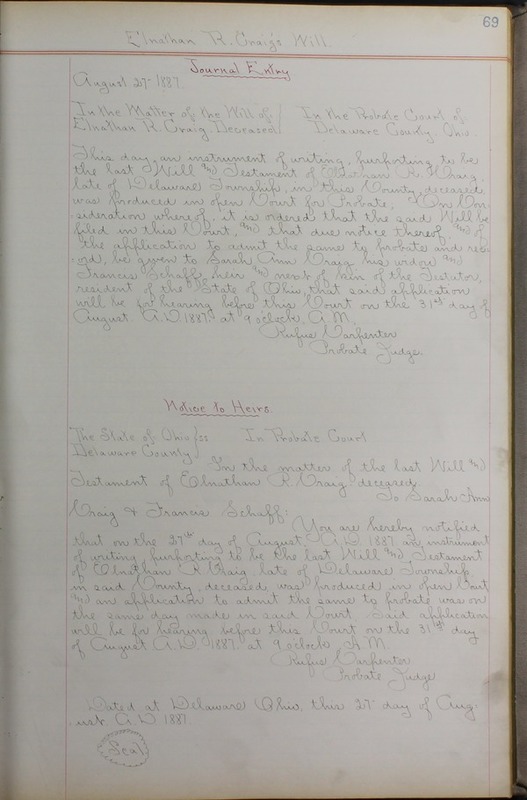 69
Elnathan R. Craig's Will.
Journal Entry
August 27- 1887.
In the Matter of the Will of / In the Probate Court of
Elnathan R. Craig Deceased / Delaware County, Ohio.
This day, an instrument of writing, purporting to be
the last Will and Testament of Elnathan R. Craig,
late of Delaware Township, in this County, deceased,
was produced in open Court for Probate; On Con-
sideration whereof, it is ordered that the said Will be
filed in this Court, and that due notice thereof, and of
the application to admit the same to probate and rec-
ord, be given to Sarah Ann Craig his widow and
Francis Schaff, heir and next of kin of the Testator,
resident of the State of Ohio, that said application
will be for hearing before this Court on the 31st day of
August A.D 1887. at 9 o'clock A.M.
Rufus Carpenter
Probate Judge.
Notice to Heirs.
The State of Ohio } ss In Probate Court
Delaware County }
In the matter of the last Will and
Testament of Elnathan R. Craig deceased.
To Sarah Ann
Craig & Francis Schaff:
You are hereby notified
that on the 27th day of August, A.D. 1887 an instrument
of writing, purporting to be the last Will and Testament
of Elnathan R. Craig late of Delaware Township
in said County, deceased, was produced in open Court
and an application to admit the same to probate was on
the same day made in said Court. Said application
will be for hearing before this Court on the 31st day
of August A.D. 1887. at 9 o'clock A.M.
Rufus Carpenter
Probate Judge
Dated at Delaware Ohio, this 27- day of Aug-
ust. A.D 1887
Seal